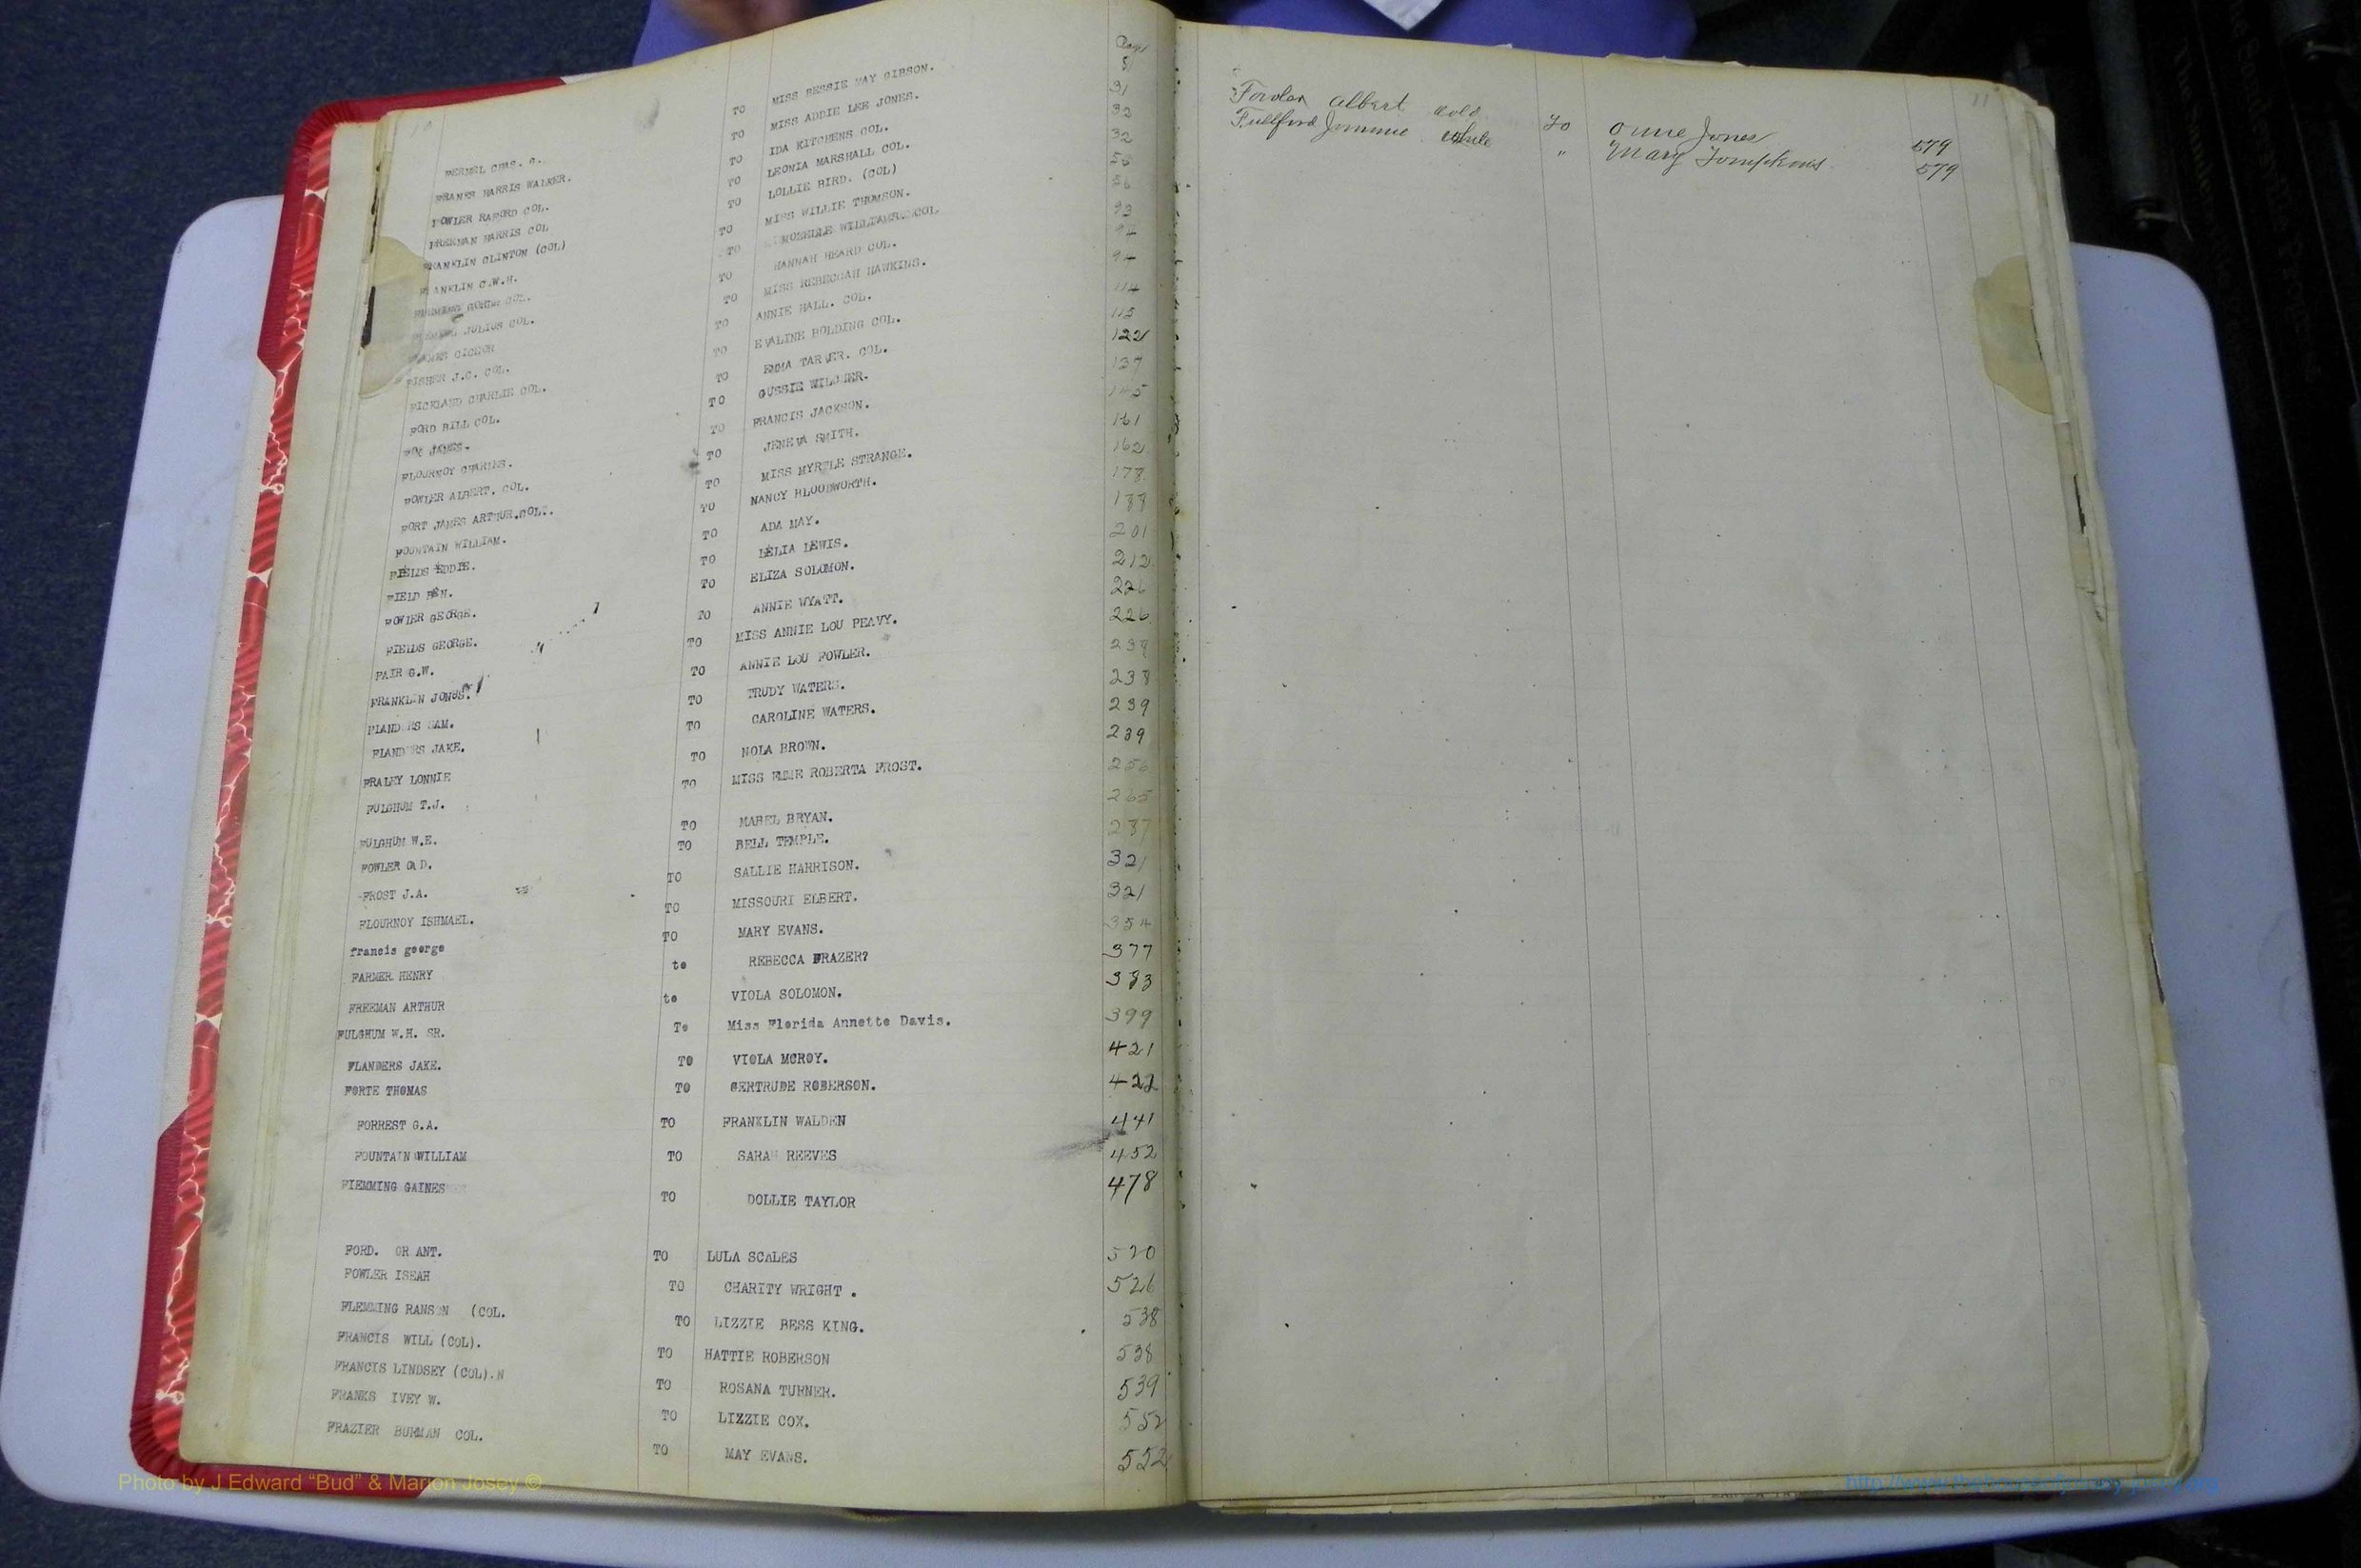 Page
FERREL CHAS. G. TO MISS BESSIE MAY GIBSON. 8
FRANKS HARRIS WALKER. TO MISS ADDIE LEE JONES. 31
FOWLER RAFORD COL. TO IDA KITCHENS COL. 32
FREEMAN HARRIS COL TO LEONIA MARSHALL COL. 32
FRANKLIN CLINTON (COL) TO LOLLIE BIRD. (COL) 56
FRANKLIN C.W.H. TO MISS WILLIE THOMSON. 56
COL. TO MOZELLE WILLIAMS COL 93
JULIUS COL. TO HANNAH HEARD COL. 94
TO MISS REBECCAH HAWKINS. 94
FISHER J.C. COL. TO ANNIE HALL. COL. 114
FICKLAND CHARLIE COL. TO EVALINE BOLDING COL. 115
FORD BILL COL. TO EMMA TARVER. COL. 122
FOY JAMES. TO GUSSIE WILCHER. 137
FLOURNOY CHARLES. TO FRANCIS JACKSON. 145
FOWLER ALBERT. COL. TO JENEVA SMITH. 161
FORT JAMES ARTHUR.COL. TO MISS MYRTLE STRANGE. 162
FOUNTAIN WILLIAM. TO NANCY BLOODWORTH. 178
FIELDS EDDIE. TO ADA MAY. 188
FIELD BEN. TO LELIA LEWIS. 201
FOWLER GEORGE. TO ELIZA SOLOMON. 212
FIELDS GEORGE. TO ANNIE WYATT. 226
FAIR G.W. TO MISS ANNIE LOU PEAVY. 226
FRANKLIN JONUS. TO ANNIE LOU FOWLER. 238
FLANDERS SAM. TO TRUDY WATERS. 238
FLANDERS JAKE. TO CAROLINE WATERS. 239
FRALEY LONNIE TO NOLA BROWN. 239
FULGHUM T.J. TO MISS EMME ROBERTA FROST. 256
265
FULGHUM W.E. TO MABEL BRYAN. 287
FOWLER G D. TO BELL TEMPLE. 321
FROST J.A. TO SALLIE HARRISON. 321
FLOURNOY ISHMAEL. TO MISSOURI ELBERT. 354
francis george TO MARY EVANS. 377
FARMER HENRY to REBECCA FRAZER? 383
FREEMAN ARTHUR to VIOLA SOLOMON.
FULGHUM W.H. SR. To Miss Florida Annette Davis. 399
FLANDERS JAKE. TO VIOLA MCROY. 421
FORTE THOMAS TO GERTRUDE ROBERSON. 422
FORREST G.A. TO FRANKLIN WALDEN 441
FOUNTAIN WILLIAM TO SARAH REEVES 452
FlEMMING GAINES TO DOLLIE TAYLOR 478
FORD. GRANT. TO LULA SCALES 520
FOWLER ISEAH TO CHARITY WRIGHT . 526
FLEMMING RANSON (COL. TO LIZZIE BESS KING. 538
FRANCIS WILL (COL). TO HATTIE ROBERSON 538
FRANCIS LINDSEY (COL).N TO ROSANA TURNER. 539
FRANKS IVEY W. TO LIZZIE COX. 552
FRAZIER BURMAN COL. TO MAY EVANS. 552
11
Fowler Albert Cold To Jones 579
Fullford Jimmie " Mary Tompkins. 579
Photo by J Edward “Bud” & Marion Josey ©